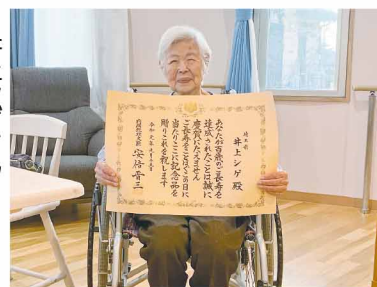 井上シゲ 殿
あなたが百歳のご長寿を
達成されたことは誠に
慶賀にたえません
ご長寿をことほぎこの日に
当たりここに記念品を
贈りこれを祝します
令和元年
内閣総理大臣 安倍晋三